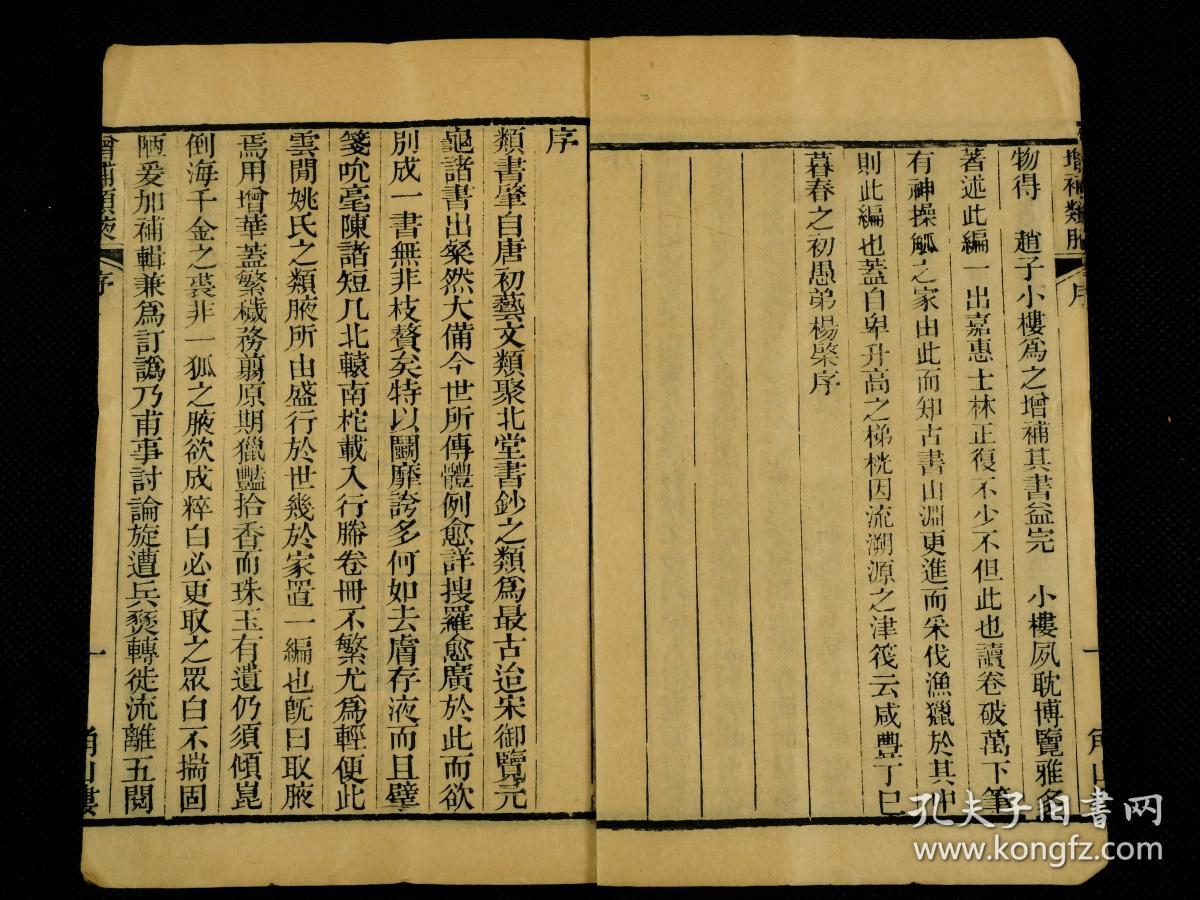 增補類腋 序 一 角山
物得　趙子小樓爲之增補其書益完　小樓夙耽博覽雅多
著述此編一出嘉惠士林正復不少不但此也讀卷破萬下筆
有神操觚之家由此而知古書山淵更進而采伐漁獵於其中
則此編也蓋自卑升高之梯桄因流溯源之津筏云咸豐丁巳
暮春之初愚弟楊棨序
序
類書肇自唐初藝文類聚北堂書鈔之類爲最古迨宋御覽元
龜諸書出粲然大備今世所傳體例愈詳搜羅愈廣於此而欲
別成一書無非枝贅矣特以鬭靡誇多何如去膚存液而且擘
箋吮毫陳諸短几北轅南柁載入行縢卷冊不繁尤爲輕便此
雲間姚氏之類腋所由盛行於世幾於家置一編也旣曰取腋
焉用增華蓋繁穢務翦原期獵豔拾香而珠玉有遺仍須傾崑
倒海千金之裘非一狐之腋欲成粹白必更取之眾白不揣固
陋爰加補輯兼爲訂譌乃甫事討論旋遭兵燹轉徙流離五閱
增補類腋 序 一 角山樓
孔夫子旧书网
www.kongfz.com